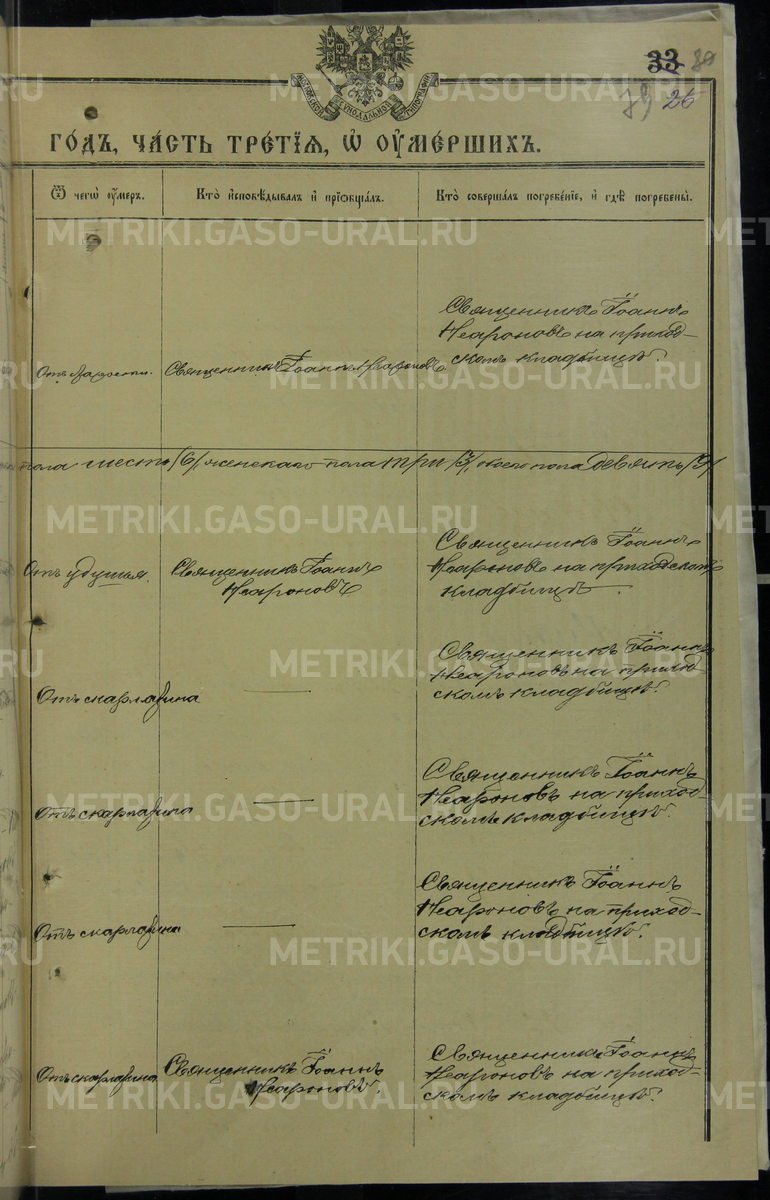 МОСКОВСКОЙ СѴНОДАЛЬНОЙ ТИПОГРАФІИ
33 30
79 26
ГОДЪ, ЧА́СТЬ ТРЕ́ТІѦ, Ѡ ОУМЕ́РШИХЪ.
Ѿ чегѡ̀ оу́меръ.
Кто̀ и҆сповѣ́дывалъ и҆ прїѡбща́лъ.
Кто̀ соверша́лъ погребе́нїе, и҆ гдѣ̀ погребены̀.
METRIKI.GASO-URAL.RU
Священникъ Іоаннъ
Неароновъ на приход-
скомъ кладбищѣ.
Отъ
Священникъ Іоаннъ Неароновъ
пола шесть /6/, женскаго пола три /3/, обоего пола девять /9/
Отъ удушья.
Священникъ Іоаннъ
Неароновъ
Священникъ Іоаннъ
Неароновъ на приходскомъ
кладбищѣ.
Отъ скарлатина
—
Священникъ Іоаннъ
Неароновъ на приход-
скомъ кладбищѣ.
Отъ скарлатина
—
Священникъ Іоаннъ
Неароновъ на приход-
скомъ кладбищѣ.
Отъ скарлатина
—
Священникъ Іоаннъ
Неароновъ на приход-
скомъ кладбищѣ.
Отъ скарлатина
Священникъ Іоаннъ
Неароновъ.
Священникъ Іоаннъ
Неароновъ на приход-
скомъ кладбищѣ.